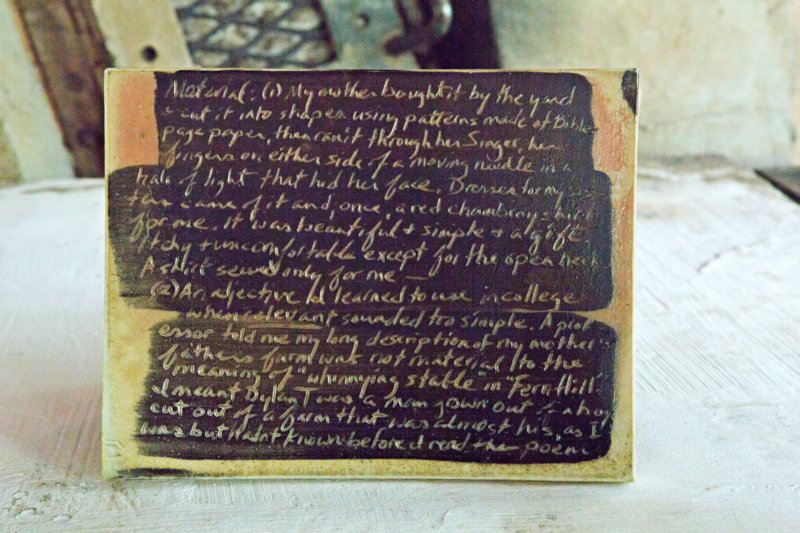 Material: (1) My mother bought it by the yard
+ cut it into shapes using patterns made of Bible-
page paper, then ran it through her Singer, her
fingers on either side of a moving needle in a
halo of light that hid her face. Dresses for my sis-
ters came of it and, once, a red chambray shirt
for me. It was beautiful + simple + a gift.
Itchy + uncomfortable except for the open neck.
A shirt sewed only for me —
(2) An adjective I'd learned to use in college
when relevant sounded too simple. A prof-
essor told me my long description of my mother's
father's farm was not material to the
meaning of "whinnying stable" in "Fern Hill."
I meant Dylan T was a man grown out of a boy
cut out of a farm that was almost his, as I
was but hadn't known before I read the poem